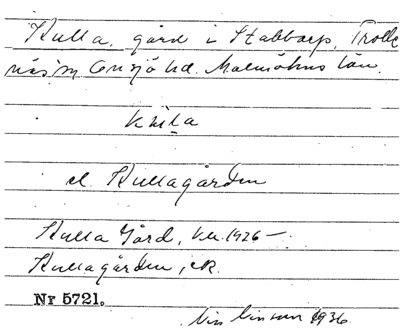 Kulla, gård i Stabbarp, Trolle
näs sn Onsjö hd. Malmöhus län.
kula
el. Kullagården
Kulla Gård, 1926 —
Kullagården, ek.
Nr 5721.
1936